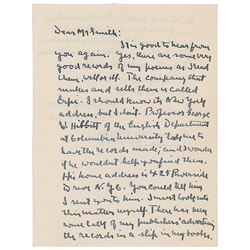 Dear Mr Smith:
It is good to hear from
you again. Yes, there are some very
good records of my poems as I read
them, well off. The company that
makes and sells them is called
I should know its New York
address, but I don't. Professor George
W. Hibbitt of the English Department
at Columbia University helped to
have the records made; and I wonder
if he wouldn't help you find them.
His home address is 429 Riverside
Drive N.Y.C. You could tell him
I sent you to him. I must look into
this matter myself. There has been
some talk of my publishers' advertising
the records in a slip in my books.